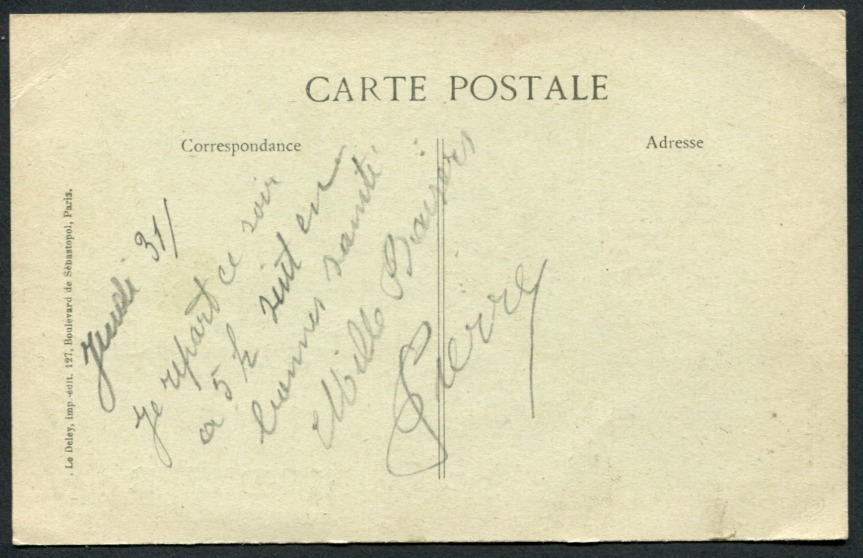 CARTE POSTALE
Correspondance
Adresse
Le Deley, imp.-édit. 127, Boulevard de Sébastopol, Paris.
Jeudi 31/
Je repart ce soir
a 5 h en
bonnes santé
Mille Baisers
Pierre